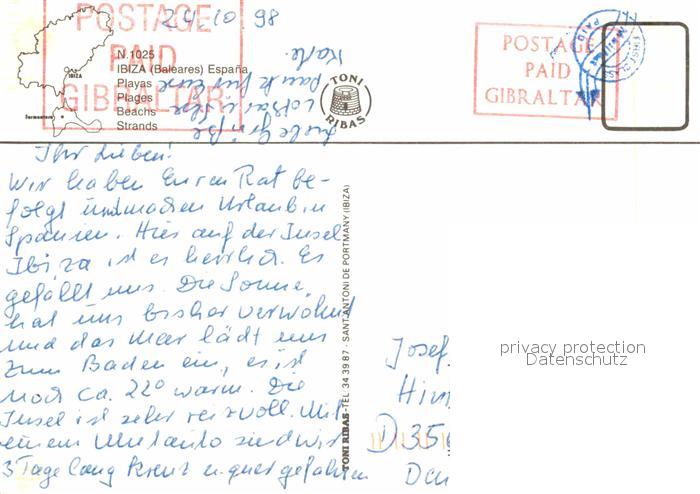 24.10.98
POSTAGE
PAID
GIBRALTAR
N.1025
IBIZA (Baleares) España
Playas
Plages
Beachs
Strands
IBIZA
Formentera
TONI
RIBAS
POSTAGE
PAID
GIBRALTAR
PAID
FIRST CLASS
Ihr Lieben!
Wir haben Euren Rat be-
folgt und machen Urlaub in
Spanien. Hier auf der Insel
Ibiza ist es herrlich. Es
gefällt uns. Die Sonne
hat uns bisher verwöhnt
und das Meer lädt uns
zum Baden ein, es ist
noch ca. 22° warm. Die
Insel ist sehr reizvoll. Mit
einem Mietauto sind wir
3 Tage lang kreuz u. quer gefahren
Liebe Grüße
Lothar u. Ilse
Dank für Eure
Karte.
TONI RIBAS - TEL 34 39 87 - SANT ANTONI DE PORTMANY (IBIZA)
Josef
D 356
privacy protection
Datenschutz